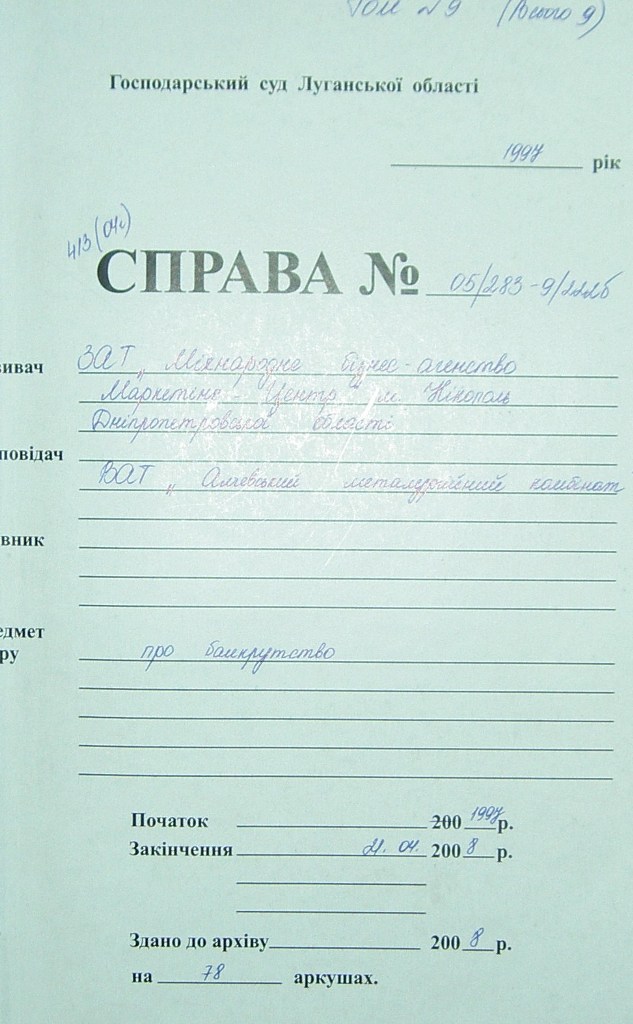 Том №9 (Всього 9)
Господарський суд Луганської області
1997 рік
413(04)
СПРАВА № 05/283-9/222б
ивач ЗАТ „Міжнародне бізнес-агенство
Маркетинг-Центр м. Нікополь
Дніпропетровської області
повідач
ВАТ „Алчевський металургійний комбінат
вник
едмет
ру
про банкрутство
Початок 200 1997 р.
Закінчення 21. 04. 2008 р.
Здано до архіву 2008 р.
на 78 аркушах.